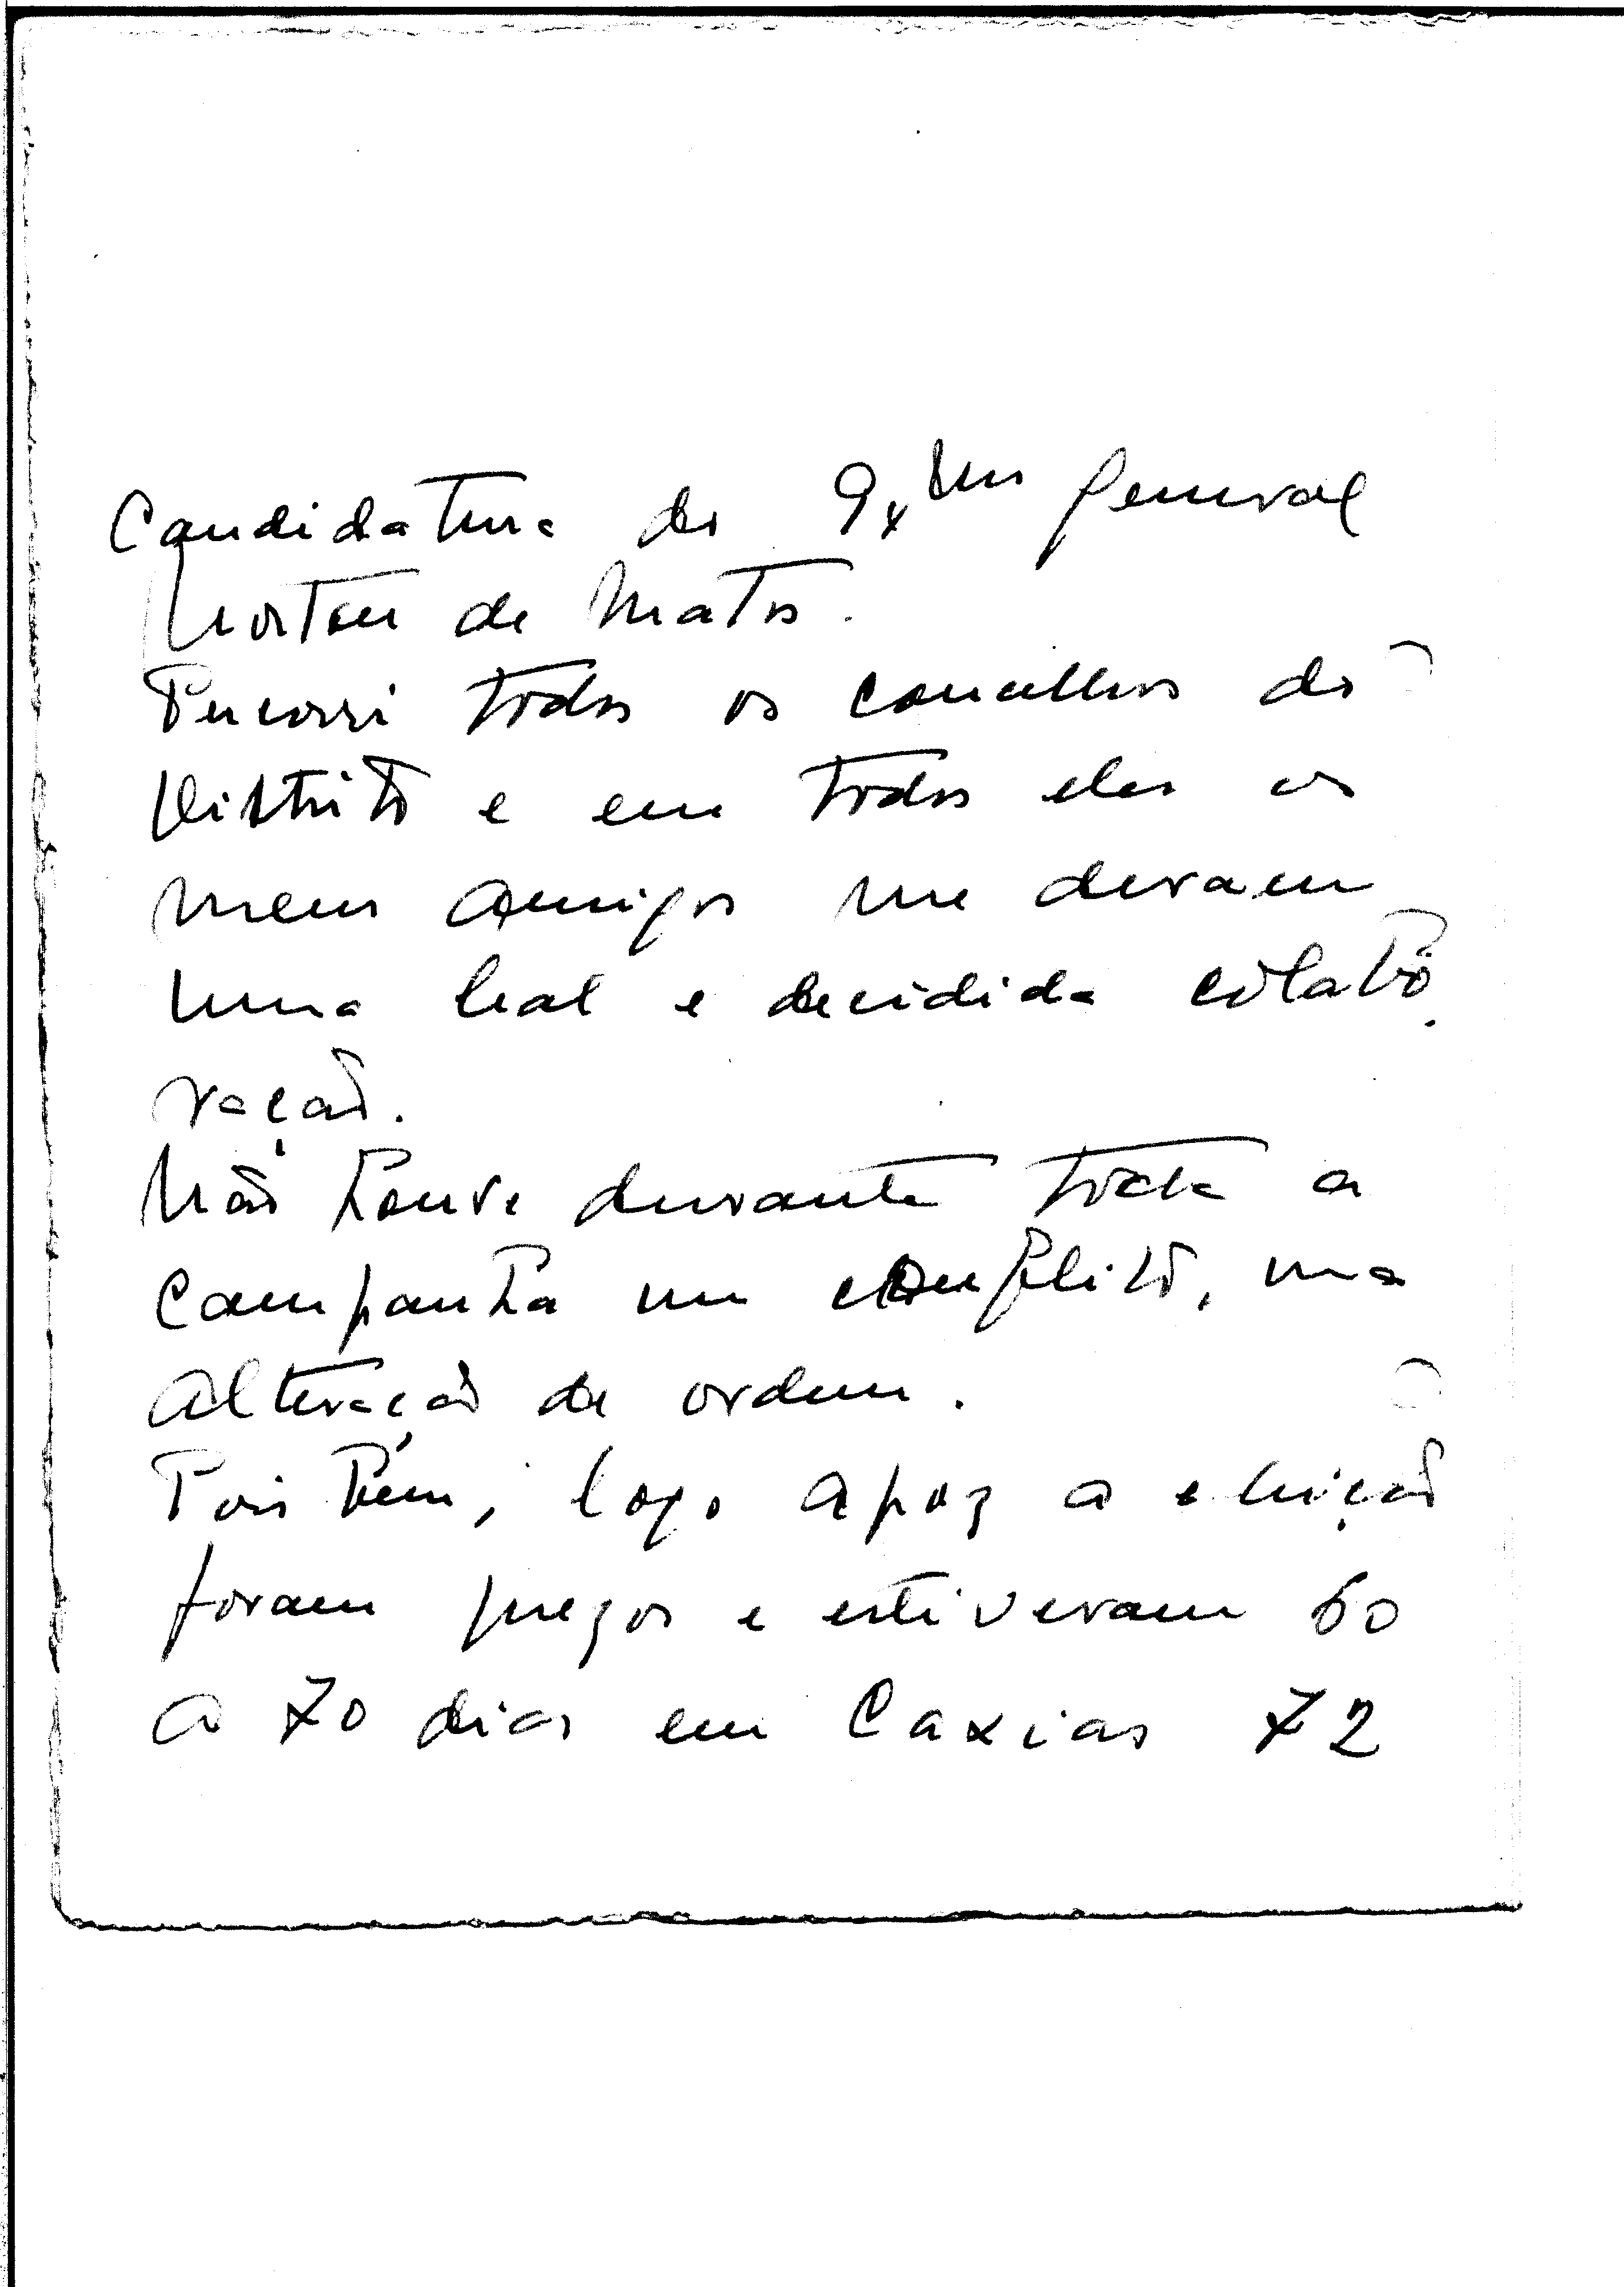 Candidatura do Exmo General
Norton de Matos.
Percorri todos os concelhos do
Distrito e em todos eles os
meus amigos me deram
uma leal e decidida colabo
ração.
Não houve durante toda a
campanha um conflito, uma
alteração de ordem.
Pois bem, logo apoz a eleição
foram prezos e estiveram 60
a 70 dias em Caxias 72